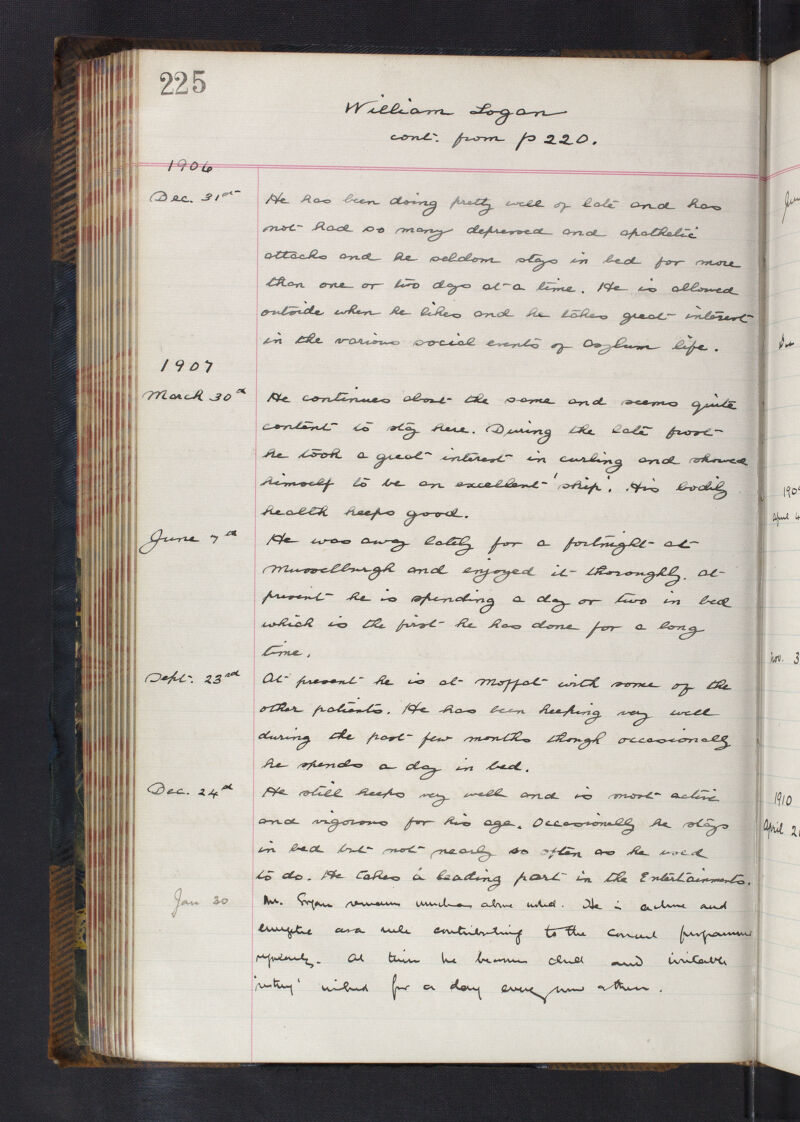 225
William Logan
cont. from p 220.
1906
Dec. 31st He has been doing pretty well of late and has
not had so many depressed and apathetic
attacks and he seldom stays in bed for more
than one or two days at a time. He is allowed
outside when he likes and he takes great interest
in the various social events of asylum life.
1907
March 30th He continues about the same and seems quite
content to stay here. During the late frost
he took a great interest in curling and showed
himself to be an excellent 'skip'. His bodily
health keeps good.
June 7th He was away lately for a fortnight at
Musselburgh and enjoyed it thoroughly. At
present he is spending a day or two in bed
which is the first he has done for a long
time.
Sept. 23rd At present he is at Moffat with some of the
other patients. He has been keeping very well
during the past few months though occasionally
he spends a day in bed.
Dec. 24th He still keeps very well and is most active
and vigorous for his age. Occasionally he stays
in bed but not nearly so often as he used
to do. He takes a leading part in the Entertainments.
Jan 30 Mr. Logan remains much as above noted. He is active and
energetic as a rule contributing to the concert programme
regularly. At times he becomes dull and irritable
in bed for a day every now & then.
1909
April
Nov. 3
1910
April 2